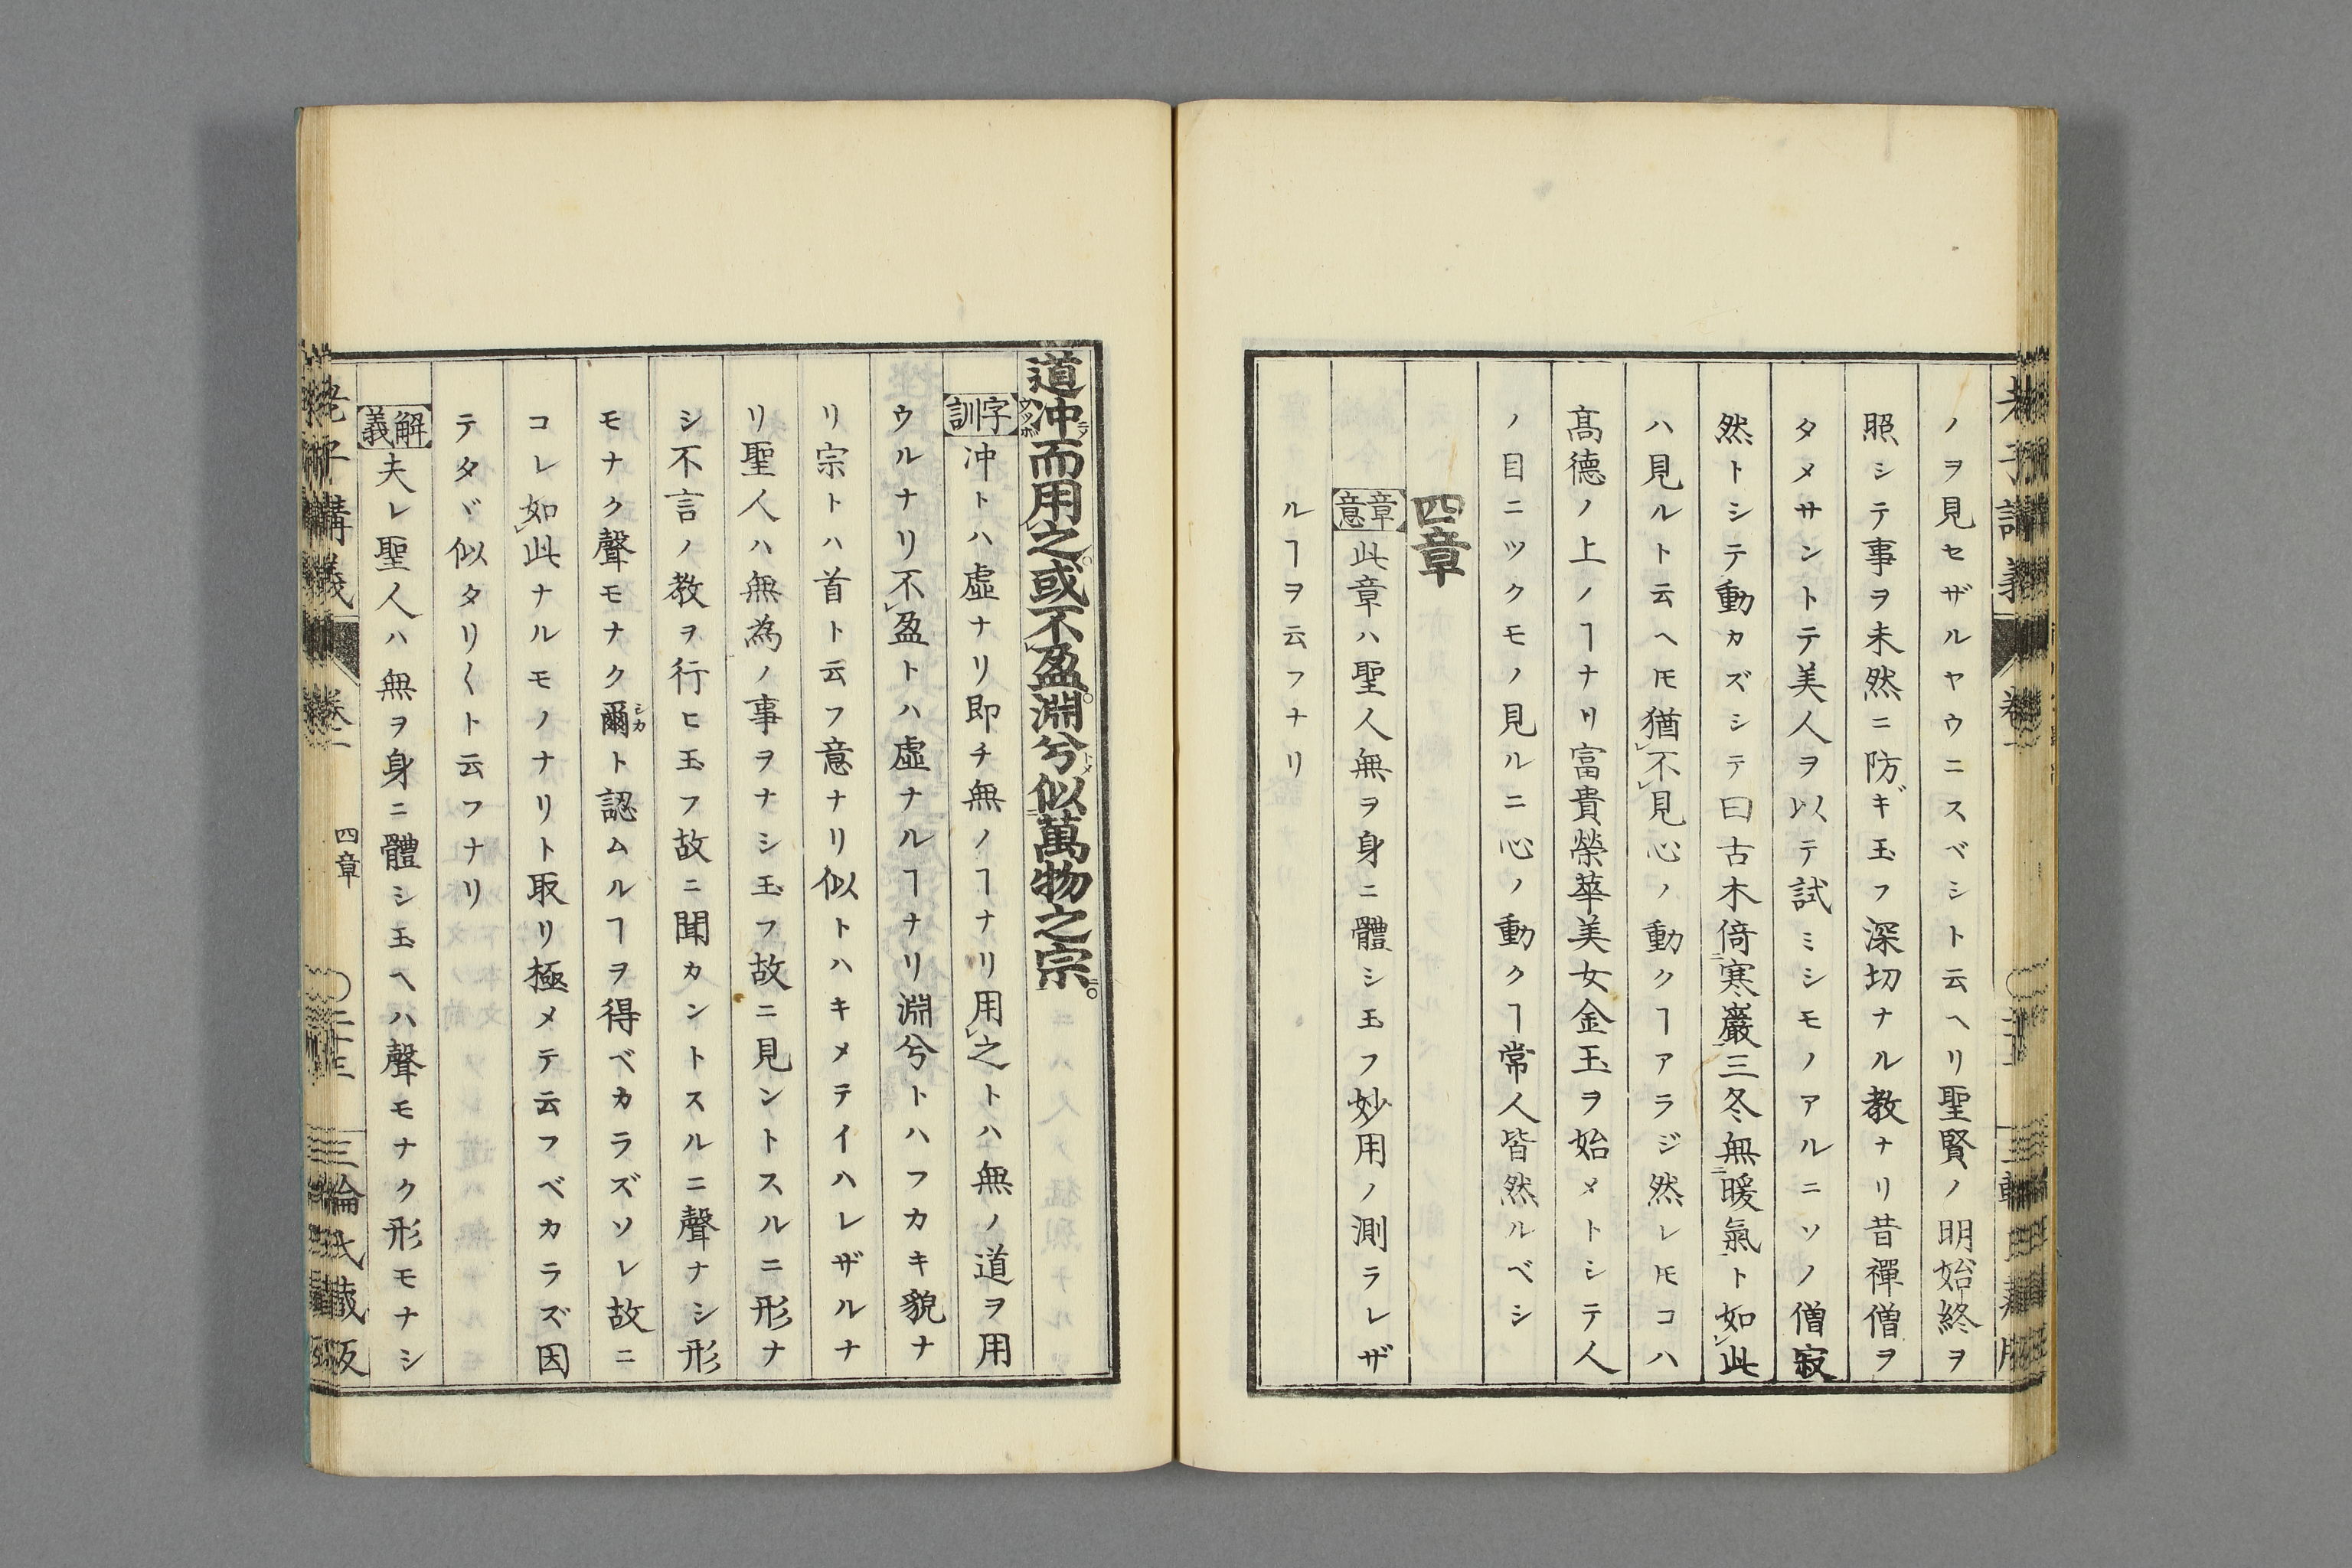 ノヲ見セザルヤウニスベシト云ヘリ聖賢ノ明始終ヲ
照シテ事ヲ未然ニ防ギ玉フ深切ナル教ナリ昔禪僧ヲ
タメサントテ美人ヲ以テ試ミシモノアルニソノ僧寂
然トシテ動カズシテ曰古木倚_二寒巖_一三冬無_二暖氣_一ト如_レ此
ハ見ルト云ヘ𪜈猶_レ不_レ見心ノ動クヿアラジ然レ𪜈コハ
髙德ノ上ノヿナリ富貴榮華美女金玉ヲ始メトシテ人
ノ目ニツクモノ見ルニ心ノ動クヿ常人皆然ルベシ
四章
章意 此章ハ聖人無ヲ身ニ體シ玉フ妙用ノ測ラレザ
ルヿヲ云フナリ
道冲而用之或不盈淵兮似萬物之宗
字訓 冲トハ虛ナリ即チ無ノヿナリ用_レ之トハ無ノ道ヲ用
ウルナリ不_レ盈トハ虛ナルヿナリ淵兮トハフカキ貌ナ
リ宗トハ首ト云フ意ナリ似トハキメテイハレザルナ
リ聖人ハ無為ノ事ヲナシ玉フ故ニ見ントスルニ形ナ
シ不言ノ教ヲ行ヒ玉フ故ニ聞カントスルニ聲ナシ形
モナク聲モナク爾シカト認ムルヿヲ得ベカラズソレ故ニ
コレ如_レ此ナルモノナリト取リ極メテ云フベカラズ因
テタヾ似タリ〱ト云フナリ
解義 夫レ聖人ハ無ヲ身ニ體シ玉ヘハ聲モナク形モナシ
老子講義 卷一 四章 三倫氏藏版